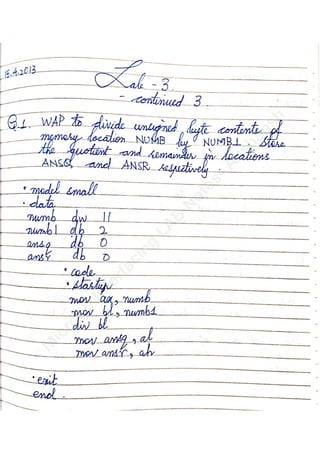 15.4.2013
Lab - 3
- continued 3
Q.1. WAP to divide unsigned byte contents of
memory location NUMB by NUMB1. Store
the quotient and remainder in locations
ANSQ and ANSR respectively.
.model small
.data
numb dw 11
numb1 db 2
ansq db 0
ansr db 0
.code
.startup
mov ax, numb
mov bl, numb1
div bl
mov ansq, al
mov ansr, ah
.exit
end.